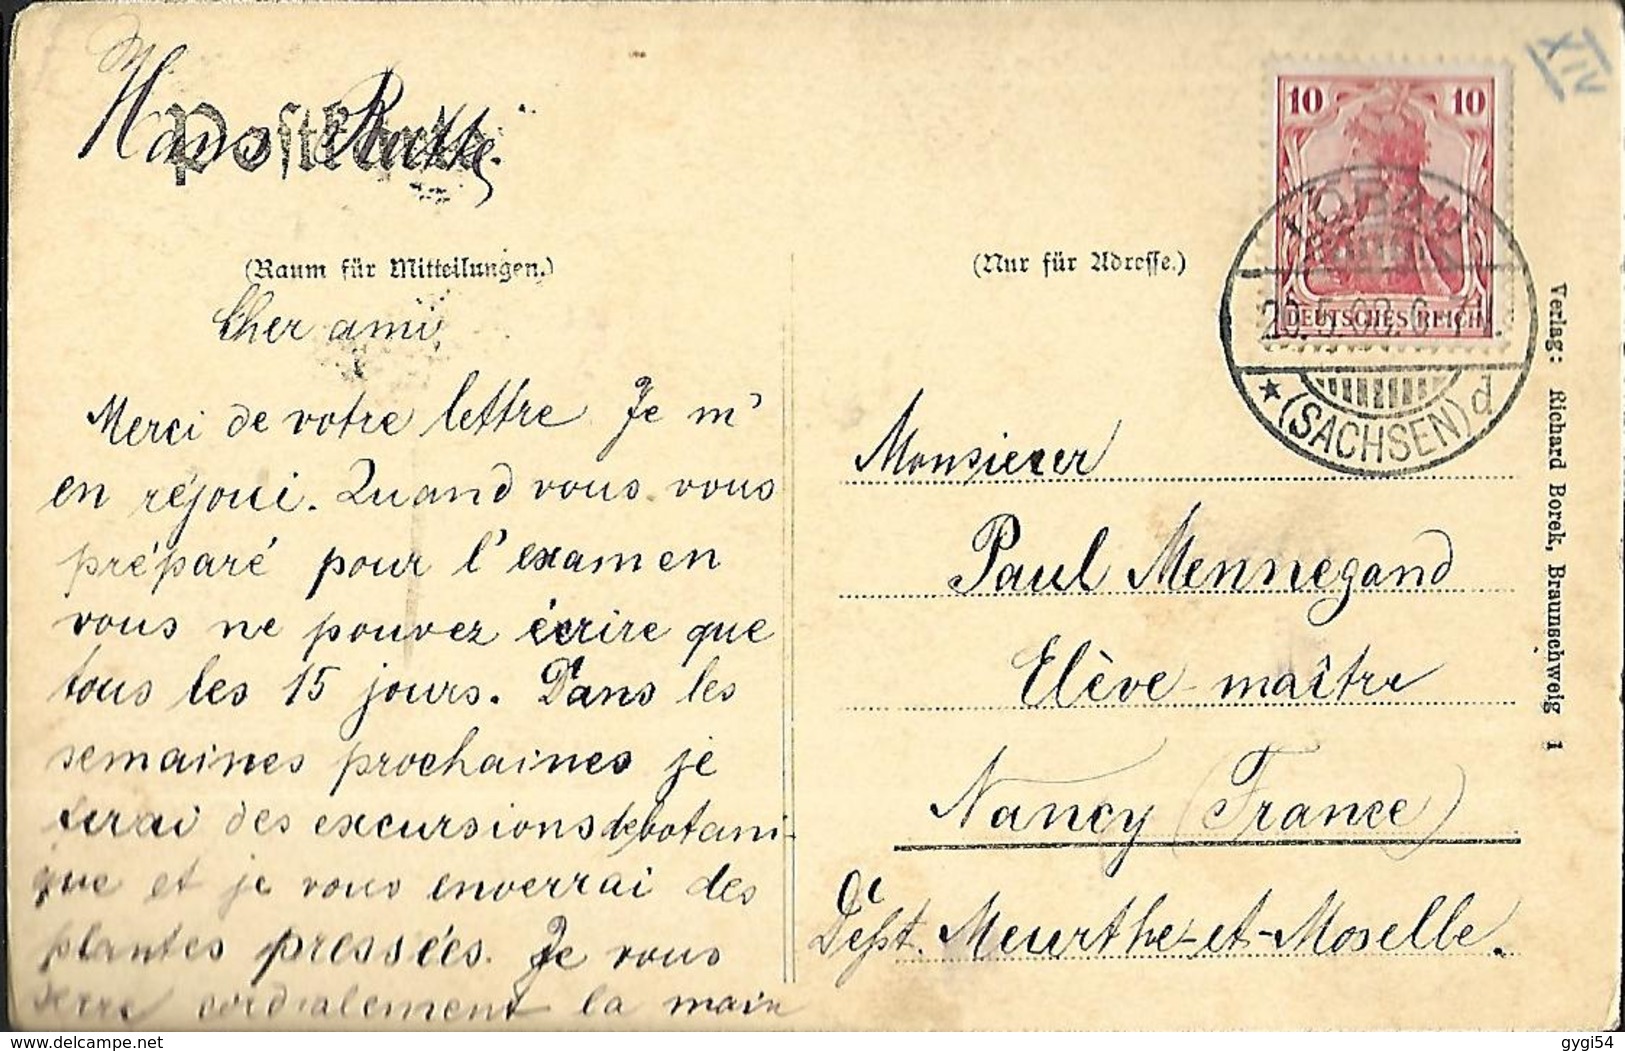 Hans
Postkarte
(Raum für Mitteilungen.)
Cher ami,
Merci de votre lettre. Je m'
en réjoui. Quand vous vous
préparé pour l'examen
vous ne pouvez écrire que
tous les 15 jours. Dans les
semaines prochaines je
ferai des excursions de botani-
que et je vous enverrai des
plantes pressées. Je vous
serre cordialement la main
(Nur für Adresse.)
XIV
10 10
DEUTSCHES REICH
LÖBAU
(SACHSEN) d
Monsieur
Paul Mennegand
Elève-maître
Nancy (France)
Dépt. Meurthe-et-Moselle.
Verlag: Richard Borek, Braunschweig 1
delcampe.net
gygi54